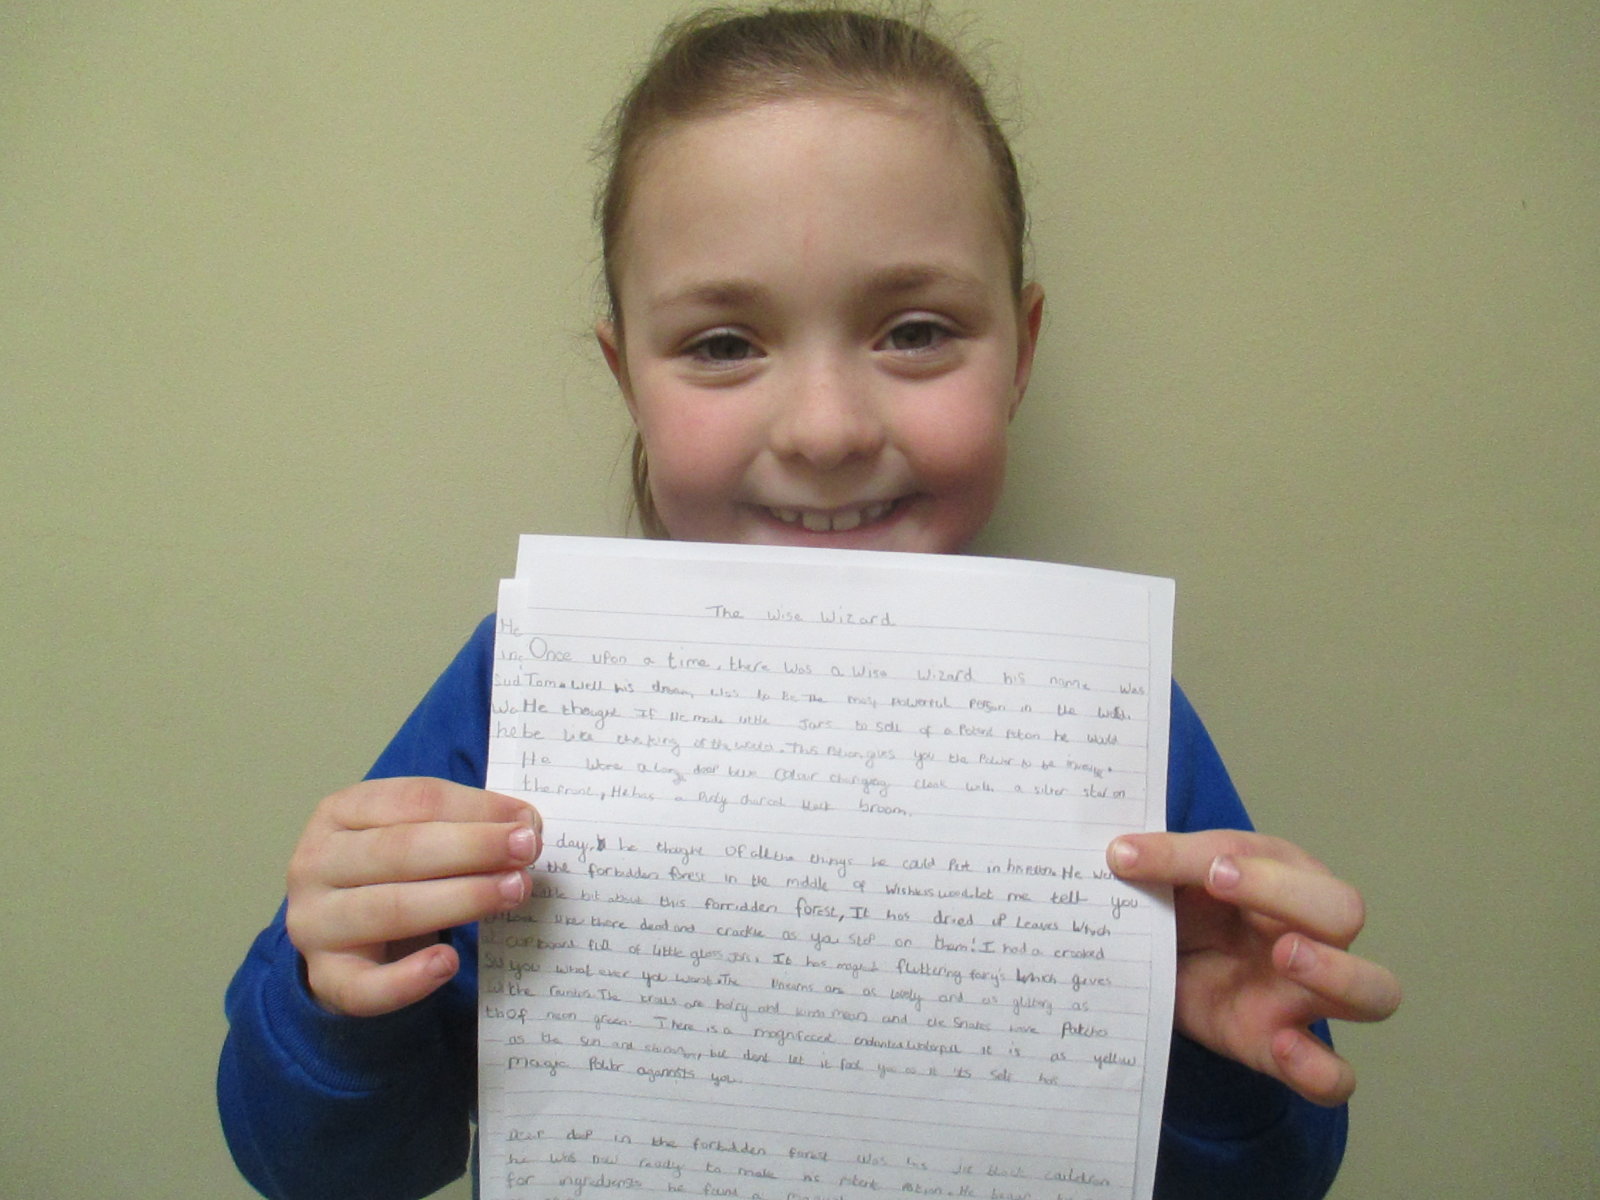 The Wise Wizard
He
Once upon a time, there was a wise wizard his name was
Tom. Well his dream was to be the most powerful person in the world.
He thought If He made little Jars to sell of a Potent Potion he would
be like the king of the world. This Potion gives you the Power to be
He wore a long deep blue colour changing cloak with a silver star on
the front, He has a charcol black broom.
day, he thought of all the things he could Put in his Potion. He went
the forbidden forest in the middle of let me tell you
little bit about this forridden forest, It has dried up Leaves which
look like there dead and crackle as you step on them! I had a crooked
cupboard full of little glass jars. It has magical fluttering fairy's which gives
you what ever you want. The Unicorns are as lovely and as glittery as
the The trolls are hairy and mean and the Snakes have Patchs
of neon green. There is a magnificent enchanted It is as yellow
as the sun and but dont let it fool you as it 'ts self has
magic Power aganists you.
Deep deep in the forbidden forest was his jet black cauldron
he was now ready to make his potent Potion. He began
for ingredients he found a